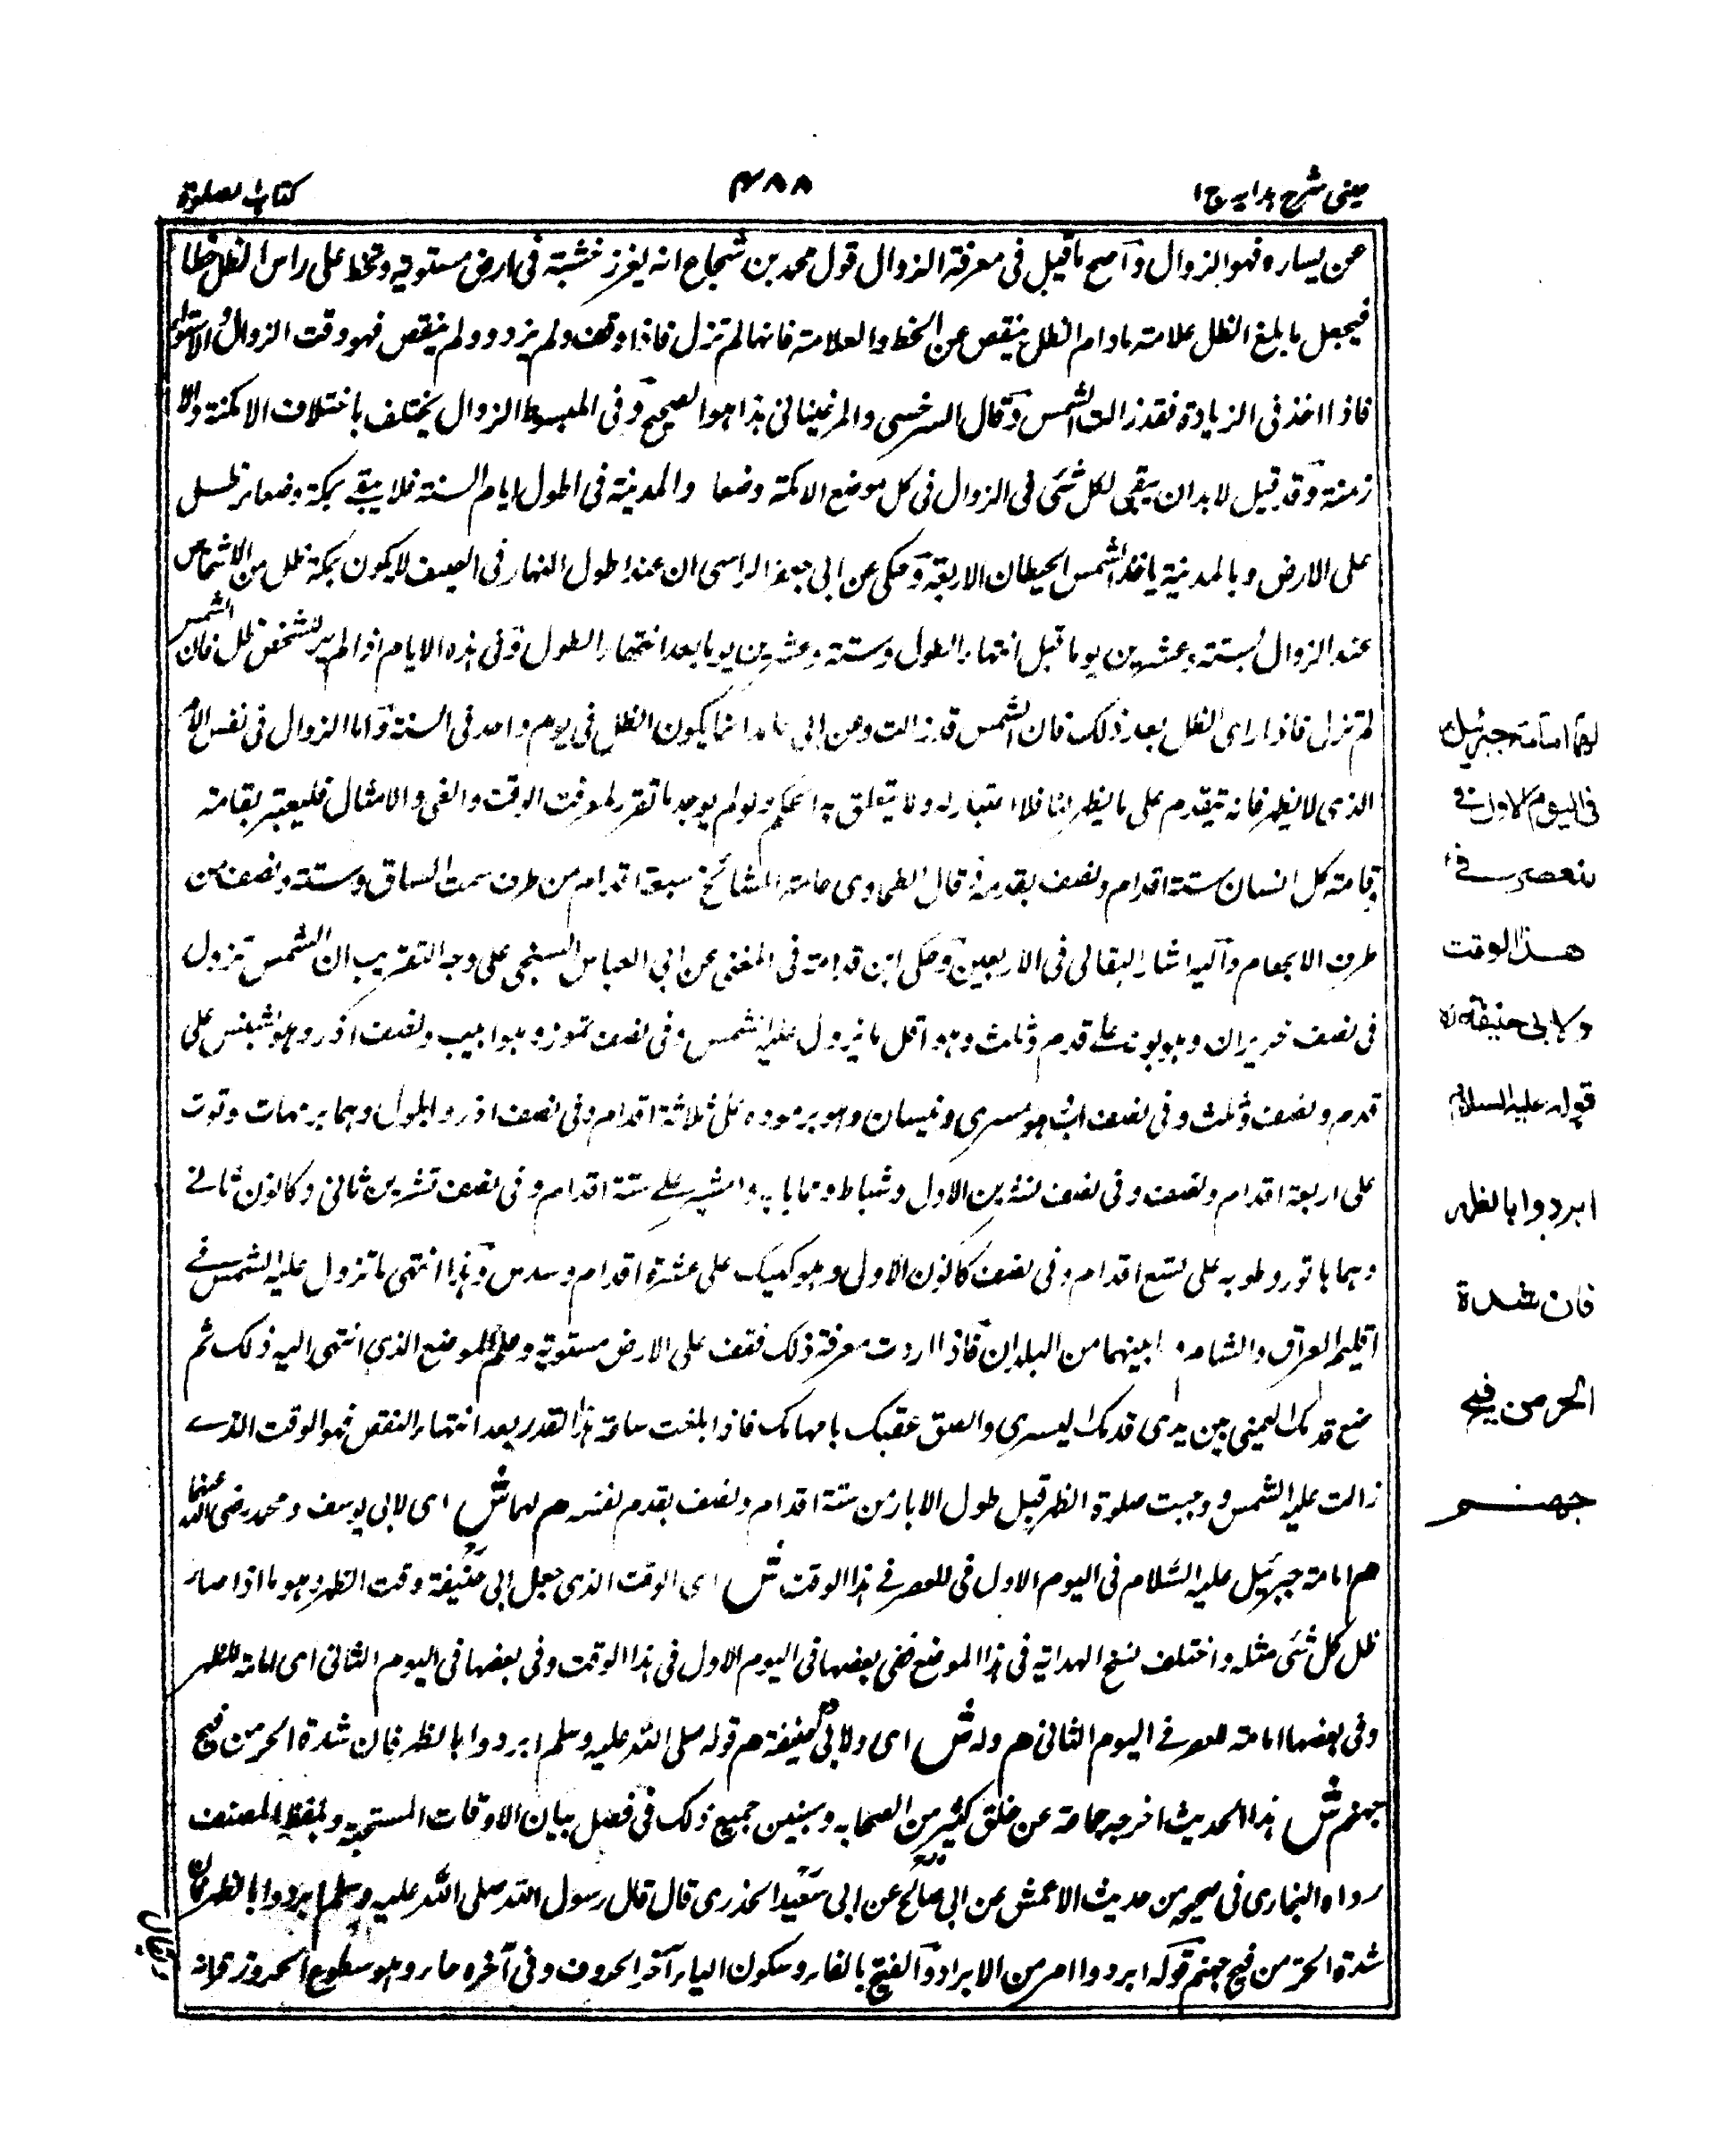 عینی شرح ہدایہ ج ا
۴۸۸
کتاب الصلوة
عن یسارہ فہو الزوال وآصح ما قیل فی معرفة الزوال قول محمد بن شجاع انہ یغرز خشبة فی ارض مستویة ویخط علی راس الظل خطا
فیجعل ما بلغ الظل علامتہ مادام الظل ینقص عن الخط والعلامتہ فانہا لم تزل فاذا وقف ولم یزدد ولم ینقص فہو وقت الزوال والاستواء
فاذا اخذ فی الزیادة فقد زالت الشمس وقال السرخسی والمرغینانی ہذا ہو الصحیح وفی المبسوط الزوال یختلف باختلاف الامکنة والا
زمنة وقد قیل لا بد ان یبقی لکل شئی فی الزوال فی کل موضع الا مکة وصنعا والمدینة فی اطول ایام السنة فلا یبقے بمکة وصنعا ظل
علی الارض وبالمدینة یاخذ الشمس الحیطان الاربعة وحکی عن ابی جعفر الراسی ان عند اطول النہار فی الصیف لا یکون بمکة ظل من الاشخاص
عند الزوال بستة وعشرین یوما قبل انتہاء الطول وستة وعشرین یوما بعد انتہاء الطول وفی ہذہ الایام اذا لم یر للشخص ظل فان الشمس
لم تزل فاذا رای الظل بعد ذلک فان الشمس قد زالت وعن ابی حامد انما یکون الظل فی یوم واحد فی السنة واما الزوال فی نفس الامر
الذی لا یظہر فانہ یتقدم علی ما یظہر لنا فلا اعتبار لہ ولا یتعلق بہ الحکم ولو لم یوجد ما تقرر لمعرفت الوقت والفی والامثال فلیعتبر بقامتہ
وقامتہ کل انسان ستة اقدام ونصف بقدمہ وقال الطحاوی عامتہ المشائخ سبعة اقدام من طرف سمت الساق وستة ونصف من
طرف الابہام والیہ اشار البقالی فی الاربعین وحکی ابن قدامة فی المغنی عن ابی العباس السنجی علی وجہ التقریب ان الشمس تزول
فی نصف حزیران وہو بونہ علے قدم وثلث وہو اقل ما تزول علیہ الشمس وفی نصف تموز وہو ابیب ونصف اذر وہو بشنس علی
قدم ونصف وثلث وفی نصف اب وہو مسری ونیسان وہو برمودہ علی ثلاثة اقدام وفی نصف اذر وایلول وہما برمہات وتوت
علی اربعة اقدام ونصف وفی نصف تشرین الاول وشباط وہما بابہ وامشیر علے ستة اقدام وفی نصف تشرین ثانی وکانون ثانے
وہما ہاتور وطوبہ علی تسع اقدام وفی نصف کانون الاول وہو کیہک علی عشرة اقدام وسدس وہذا انتہی ما تزول علیہ الشمس فے
اقلیم العراق والشام وما بینہما من البلدان فاذا اردت معرفة ذلک فقف علی الارض مستویة وعلم الموضع الذی انتہی الیہ ذلک ثم
ضع قدمک الیمنی بین یدی قدمک الیسری والصق عقبک بابہامک فاذا بلغت ساحة ہذا القدر بعد انتہاء النقص فہو الوقت الذے
زالت علیہ الشمس ووجبت صلوة الظہر قیل طول الانسان ستة اقدام ونصف بقدم نفسہ م لہما ش ای لابی یوسف ومحمد رضی اللہ عنہما
م امامة جبرئیل علیہ السلام فی الیوم الاول فی العصر فے ہذا الوقت ش ای الوقت الذی جعل ابی حنیفة وقت الظہر وہو ما اذا صار
ظل کل شئی مثلہ واختلف نسخ الہدایة فی ہذا الموضع ففی بعضہا فی الیوم الاول فی ہذا الوقت وفی بعضہا فی الیوم الثانی ای امامة الظہر
وفی بعضہا امامة العصر فے الیوم الثانی م ولہ ش ای ولابی حنیفة م قولہ صلی اللہ علیہ وسلم ابردوا بالظہر فان شدة الحر من فیح
جہنم ش ہذا الحدیث اخرجہ جماعة عن خلق کثیر من الصحابہ وسنبین جمیع ذلک فی فصل بیان الاوقات المستحبة وبلفظ المصنف
رواہ البخاری فی صحیحہ من حدیث الاعمش عن ابی صالح عن ابی سعید الخدری قال قال رسول اللہ صلی اللہ علیہ وسلم ابردوا بالظہر فان
شدة الحر من فیح جہنم قولہ ابردوا امر من الابراد والفیح بالفاء وسکون الیاء آخر الحروف وفی آخرہ حاء وہو سطوع الحر وفورانہ
لهما امامة جبرئيل
فی الیوم الاول فے
العصر فے
هذا الوقت
ولابی حنیفة رہ
قوله علیه السلام
ابردوا بالظهر
فان شدة
الحر من فیح
جهنم